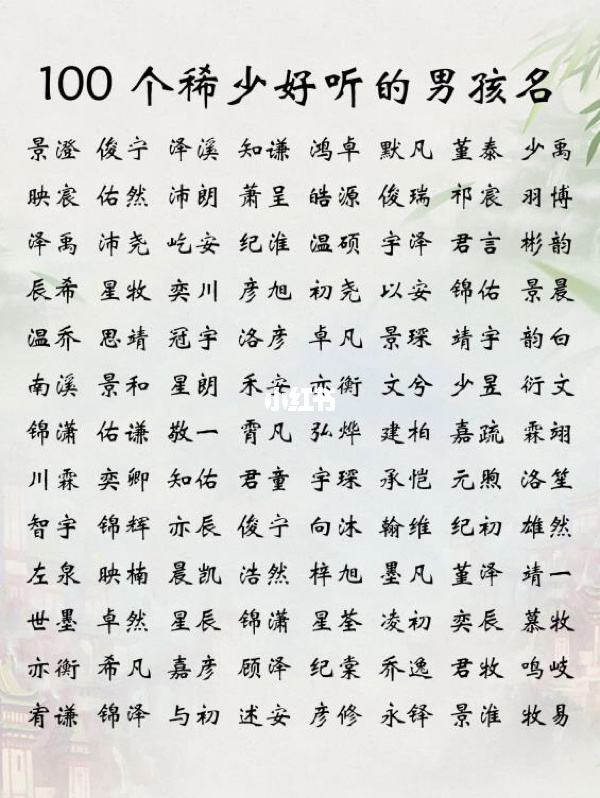 100 个稀少好听的男孩名
景澄 俊宁 泽溪 知谦 鸿卓 默凡 堇泰 少禹
映宸 佑然 沛朗 萧呈 皓源 俊瑞 祁宸 羽博
泽禹 沛尧 屹安 纪淮 温硕 宇泽 君言 彬韵
辰希 星牧 奕川 彦旭 初尧 以安 锦佑 景晨
温乔 思靖 冠宇 洛彦 卓凡 景琛 靖宇 韵白
南溪 景和 星朗 禾安 亦衡 文兮 少昱 衍文
小红书
锦潇 佑谦 敬一 霄凡 弘烨 建柏 嘉疏 霖翊
川霖 奕卿 知佑 君童 宇琛 承恺 元煦 洛笙
智宇 锦辉 亦辰 俊宁 向沐 翰维 纪初 雄然
左泉 映楠 晨凯 浩然 梓旭 墨凡 堇泽 靖一
世墨 卓然 星辰 锦潇 星荃 凌初 奕辰 慕牧
亦衡 希凡 嘉彦 顾泽 纪棠 乔逸 君牧 鸣岐
宥谦 锦泽 与初 述安 彦修 永铎 景淮 牧易